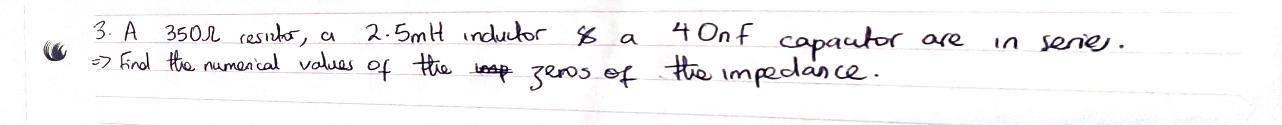 3. A 350Ω resistor, a 2.5mH inductor & a 40nf capacitor are in series.
=> Find the numerical values of the zeros of the impedance.